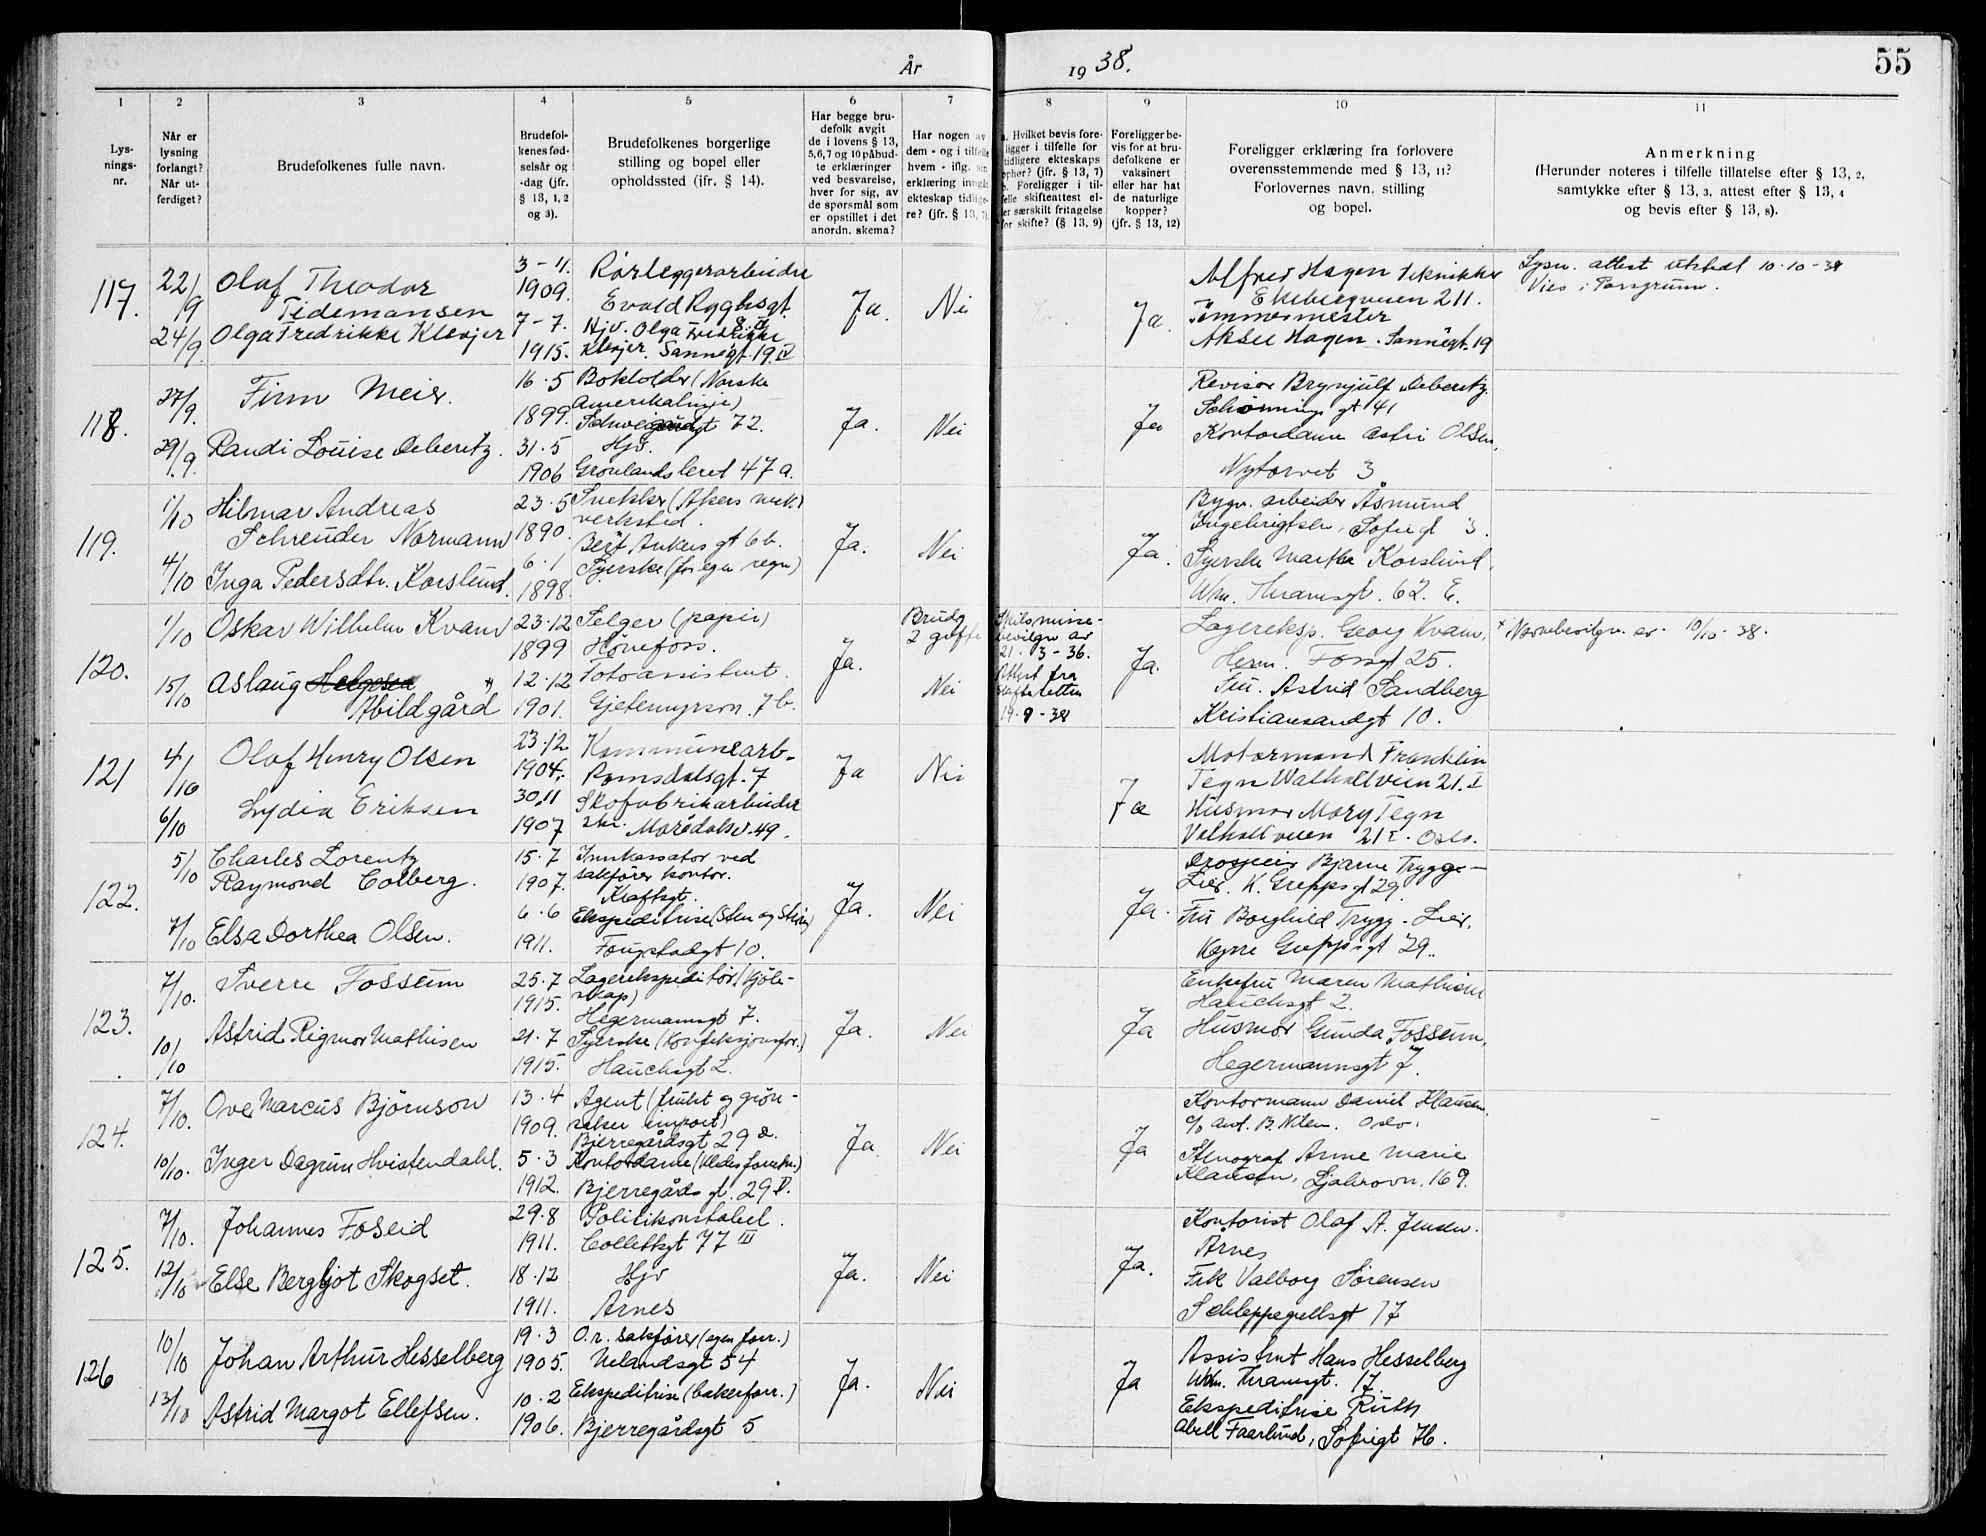 År 1938.
55
1 2 3 4 5 6 7 8 9 10 11
Lysningsnr.
Når er lysning forlangt? Når utferdiget?
Brudefolkenes fulle navn.
Brudefolkenes fødselsår og -dag (jfr. § 13, 1, 2 og 3).
Brudefolkenes borgerlige stilling og bopel eller opholdssted (jfr. § 14).
Har begge brudefolk avgit de i lovens § 13, 5,6,7 og 10 påbudte erklæringer ved besvarelse, hver for sig, av de spørsmål som er opstillet i det anordn. skema?
Har nogen av dem - og i tilfelle hvem - iflg. sin erklæring inngått ekteskap tidligere? (jfr. § 13, 7)
a. Hvilket bevis foreligger i tilfelle for tidligere ekteskaps ophør? (jfr. § 13, 7) b. Foreligger i tilfelle skifteattest eller særskilt fritagelse for skifte? (§ 13, 9)
Foreligger bevis for at brudefolkene er vaksinert eller har hat de naturlige kopper? (jfr. § 13, 12)
Foreligger erklæring fra forlovere overensstemmende med § 13, 11? Forlovernes navn, stilling og bopel.
Anmerkning
(Herunder noteres i tilfelle tillatelse efter § 13, 2, samtykke efter § 13, 3, attest efter § 13, 4 og bevis efter § 13, 8).
117.
22/9
24/9
Olaf Theodor
Tidemansen
Olga Fredrikke Klevjer
3-11.
1909.
7-7.
1915.
Rørleggerarbeider
Evald Ryghsgt.
Hjv. Olga Fredrikke
Klevjer. Sannergt. 19 IV
Ja.
Nei
Ja.
Alfred Hagen tekniker
Ekebergveien 211.
Tømmermester
Aksel Hagen. Sannergt. 19
Lysn. attest utstedt 10-10-38
Vies i Porsgrunn.
118.
27/9.
29/9.
Finn Meier.
Randi Louise Deberitz.
16.5
1899.
31.5
1906
Bokholder (Norske
Amerikalinje)
Schweigaardsgt 72.
Hjv.
Grønlandsleret 47 a.
Ja.
Nei
Ja
Revisor Brynjulf Deberitz.
Schønnings gt 41
Kontordame Astri Olsen,
Nytorvet 3
119.
1/10
4/10
Hilmar Andreas
Schreuder Normann
Inga Pedersdtr. Korslund.
23.5
1890.
6.1
1898.
Snekker (Akers mek.
verksted.
Bernt Ankers gt 6 b.
Syerske (for egen regn)
Ja.
Nei
Ja.
Bygn. arbeider Åsmund
Ingebrigtsen, Sofiegt 3.
Syerske Martha Korslund,
Wm. Thranesgt. 62. E.
120.
1/10
15/10
Oskar Wilhelm Kvam
Aslaug Helgesen *)
Abildgård
23.12
1899
12.12
1901.
Selger (papir)
Hønefoss.
Fotoassistent.
Gjetemyrsvn. 7 b.
Ja.
Brudg
2 gifte
Nei
Skilsmisse-
bevilgn av
21. 3-36.
Attest fra
skifteretten
19-9-38
Ja.
Lagereksp. Georg Kvam,
Herm. Fossgt 25.
Fru. Astrid Sandberg
Kristiansandgt 10.
* Navnebevilgn. av 10/10-38.
121
4/10
6/10
Olaf Henry Olsen
Lydia Eriksen
23.12
1904.
30.11
1907
Kommunearb.
Romsdalsgt. 7
Skofabrikarbeider
ske. Maridalsv. 49.
Ja
Nei
Ja
Motormand Franklin
Tegn Walhallveien 21. I
Husmor Mary Tegn
Valhallveien 21 I. Oslo.
122.
5/10
7/10
Charles Lorentz
Raymond Colberg.
Elsa Dorthea Olsen.
15.7
1907.
6.6
1911.
Innkassator ved
sakfører kontor.
Kraftsgt.
Ekspeditrise (Sten og Strøm)
Fougstadgt 10.
Ja.
Nei
Ja.
Drosjeeier Bjarne Trygg-
Lier. K. Greppsgt 29.
Fru Borghild Trygg-Lier,
Kyrre Greppsgt 29.
123.
7/10.
10/10
Sverre Fossum
Astrid Rigmor Mathisen
25.7
1915.
21.7
1915.
Lagerekspeditør (Kjøle-
skap)
Hegermannsgt 7.
Syerske (konfeksjonsfor.)
Hauchsgt 2.
Ja.
Nei
Ja
Enkefru Maren Mathisen
Hauchsgt 2.
Husmor Gunda Fossum,
Hegermannsgt 7.
124.
7/10.
10/10.
Ove Marcus Bjørnson
Inger Dagrun Hvistendahl.
13.4
1909.
5.3
1912.
Agent (frukt og grøn-
saker import)
Bjerregårdsgt 29 D.
Kontordame (Kledesforretn.)
Bjerregårdsgt. 29 D.
Ja
Nei
Ja
Kontormann Daniel Klausen.
c/o Oslo.
Stenograf Anne Marie
Klausen, Ljabrovn. 169.
125.
7/10.
12/10
Johannes Foseid
Else Bergljot Skogset.
29.8
1911.
18.12
1911.
Politikonstabel.
Collettsgt 77 III
Hjv
Årnes
Ja.
Nei
Ja.
Kontorist Olaf A. Jensen.
Årnes
Frk Valborg Sørensen
Schleppegrellsgt 17
126
10/10
13/10
Johan Arthur Hesselberg
Astrid Margot Ellefsen.
19.3
1905.
10.2
1906.
O.r. sakfører (egen forr.)
Uelandsgt 54
Ekspeditrise (bakerforr.)
Bjerregårdsgt 5
Ja.
Nei
Ja
Assistent Hans Hesselberg
Wm. Thranesgt. 17.
Ekspeditrise Ruth
Abell Faarlund, Sofiegt 76.